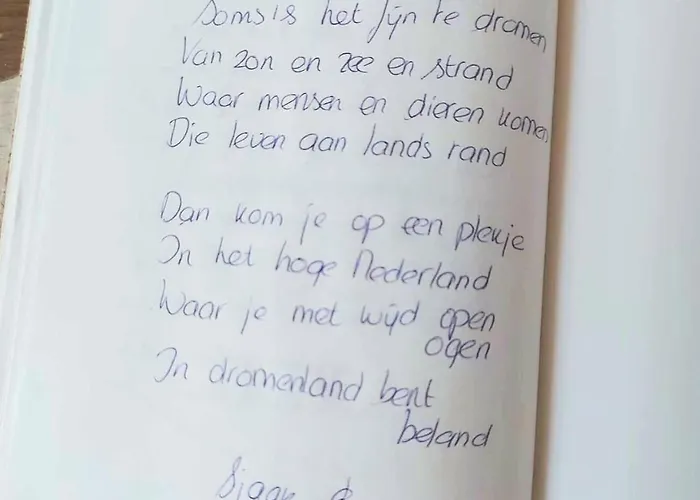 Soms is het fijn te dromen
Van zon en zee en strand
Waar mensen en dieren komen
Die leven aan lands rand
Dan kom je op een plekje
In het hoge Nederland
Waar je met wijd open
ogen
In dromenland bent
beland